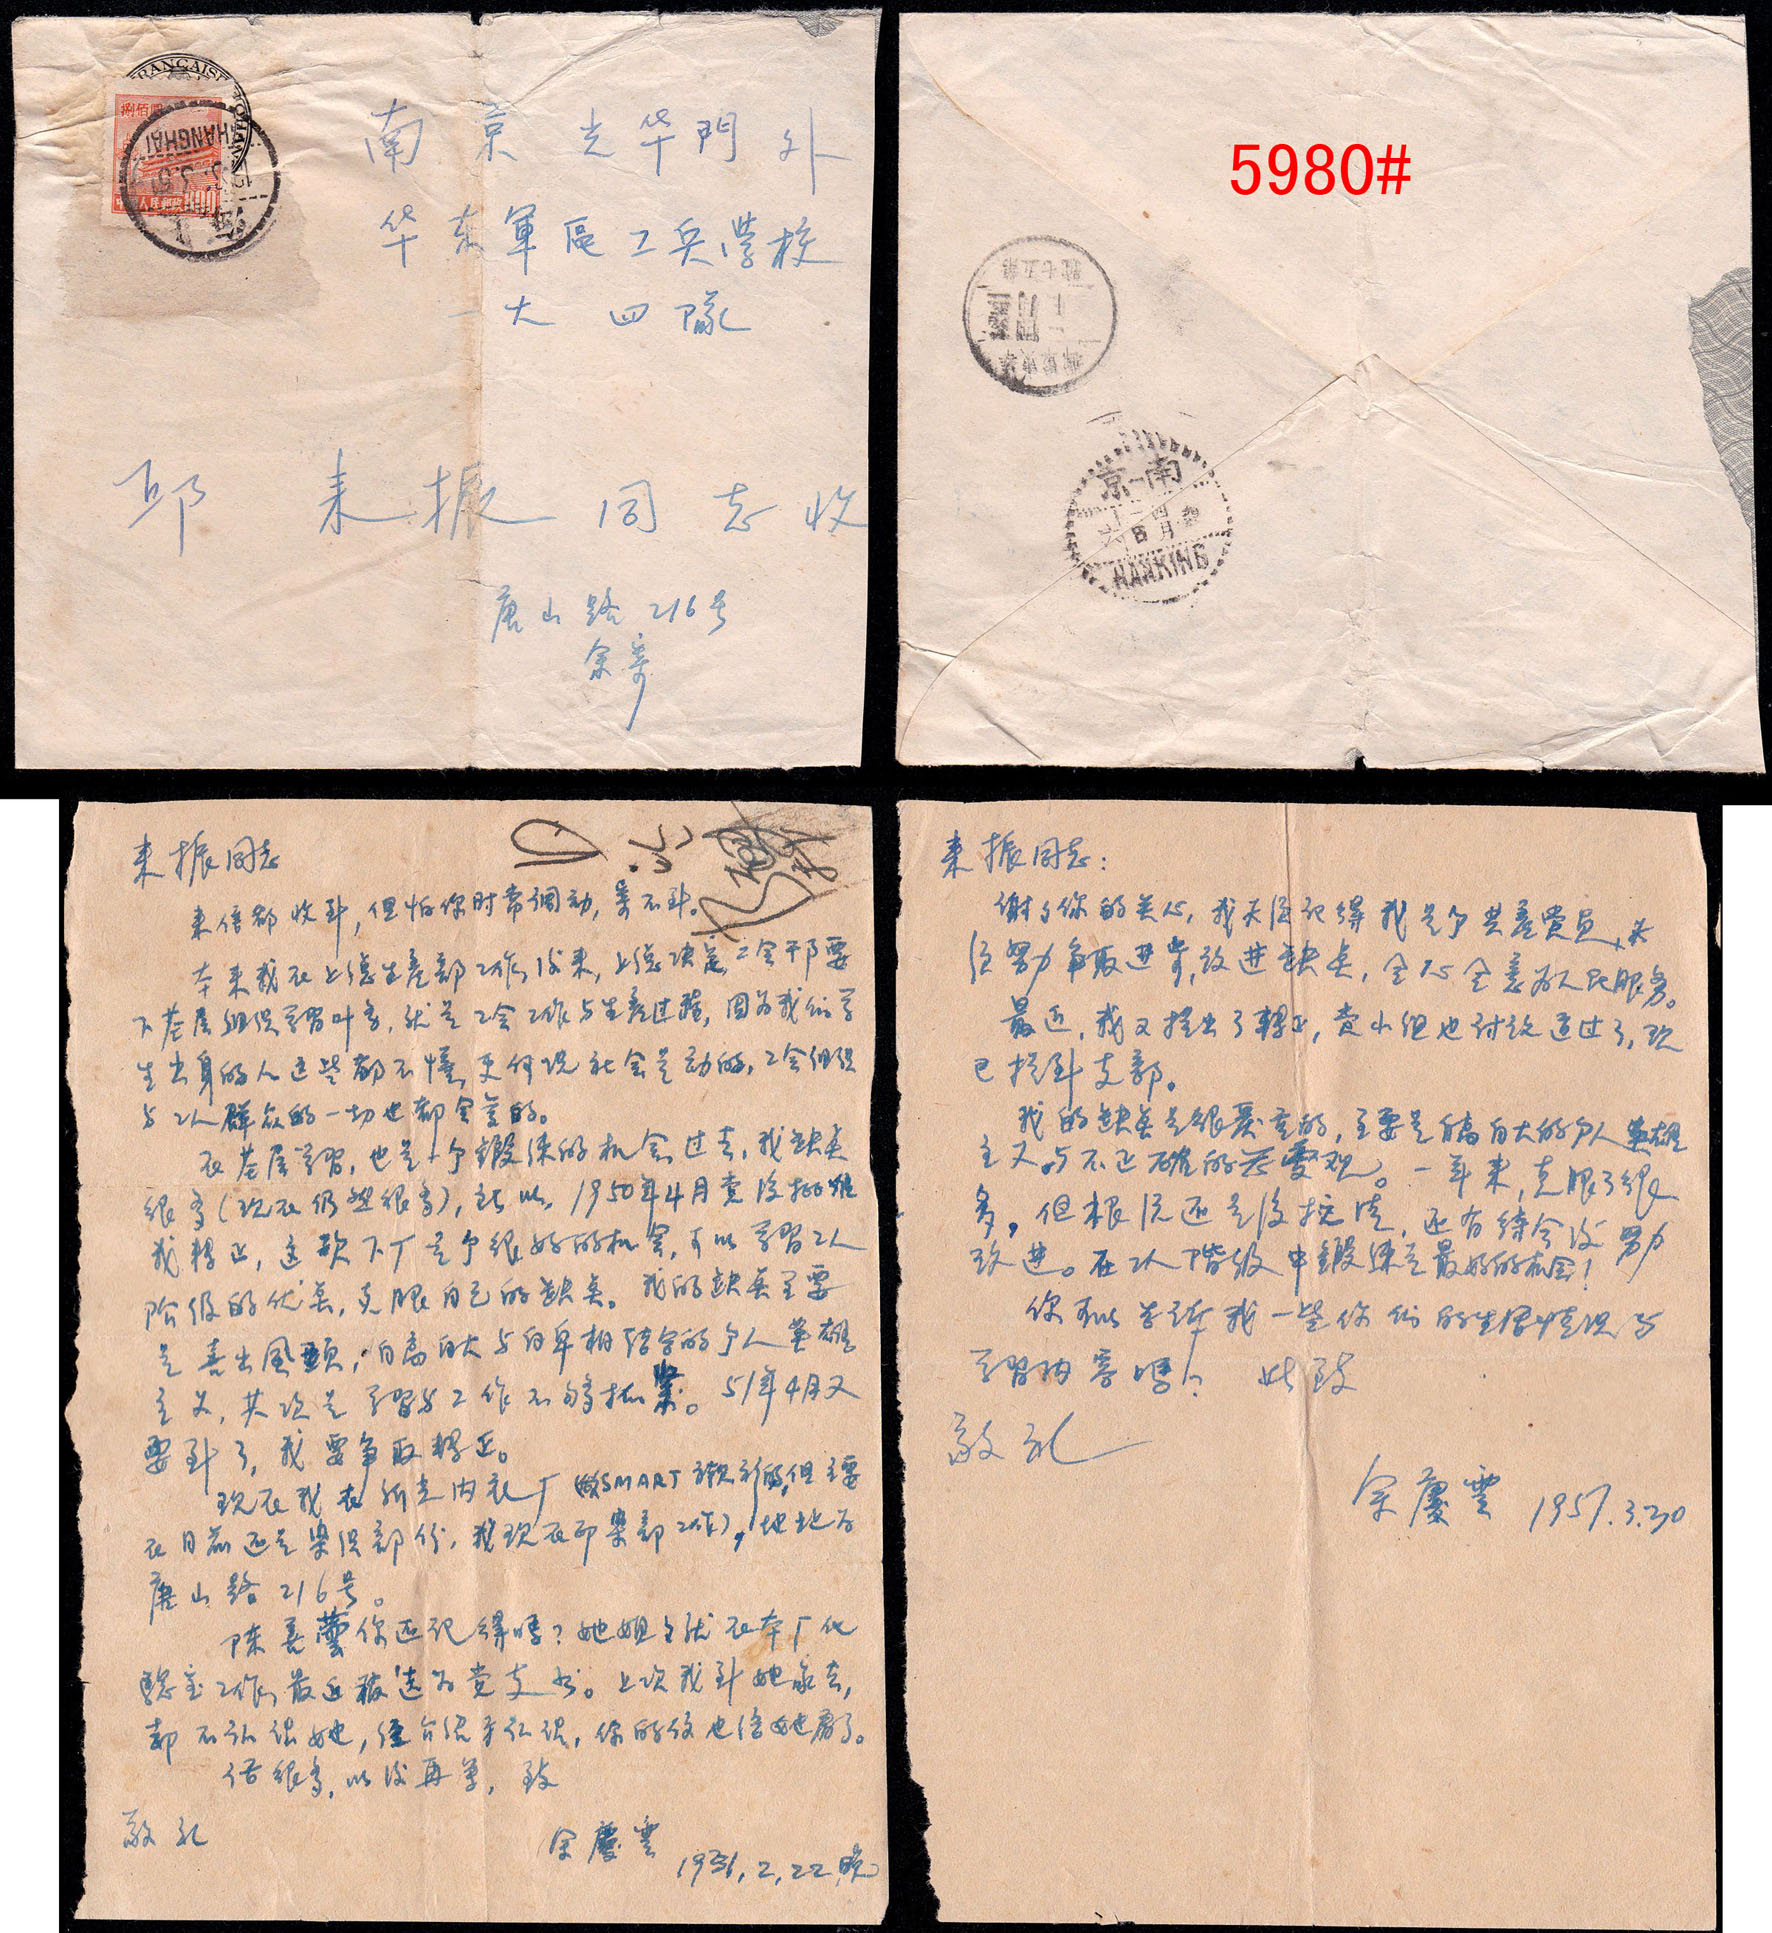 南京光华門外
华东軍區工兵學校
一大四隊
邱来振同志收
唐山路216号
余寄
捌佰圓
SHANGHAI
5980#
南京
NANKING
来振同志
来信都收到,但怕你时常调动,寄不到。
本来我在上總生產部工作,後来,上總决定工会干部要
下基层组织學習
生出身的人这些都不懂,更何况社会是动的,工会组织
与工人群众的一切也都会变的。
在基层学習,也是个鍛鍊的机会,过去,我缺点
很多(现在仍然很多),所以,1950年4月党没批准
我轉正,这次下厂是个很好的机会,可以学習工人
阶级的优点,克服自己的缺点。我的缺点主要
是喜出風頭,自高自大与自卑相结合的个人英雄
主义,其次是学習与工作不够抓紧。51年4月又
要到了,我要争取轉正。
现在我在新光内衣厂(做SMART
唐山路216号。
陈善你还记得嗎?她姐姐就在本厂化
驗室工作,最近被选为党支书。上次我到她家去,
都不认识她,经介绍才认识,你的信也给她看了。
话很多,以後再写,致
敬礼
余慶雲
1951.2.22,晚
来振同志:
谢谢你的关心,我天天记得我是个共產党员,必
须努力争取进步,改进缺点,全心全意为人民服务。
最近,我又提出了轉正,党小组也讨论通过了,现
已提到支部。
我的缺点是很严重的,主要是自高自大的个人英雄
主义与不正確的恋愛观。一年来,克服了很
多,但根源还是没挖清,还有待今後努力
改进。在工人階级中鍛鍊是最好的机会!
你可以告诉我一些你们的生活情况与
学習内容嗎?此致
敬礼
余慶雲 1951.3.30